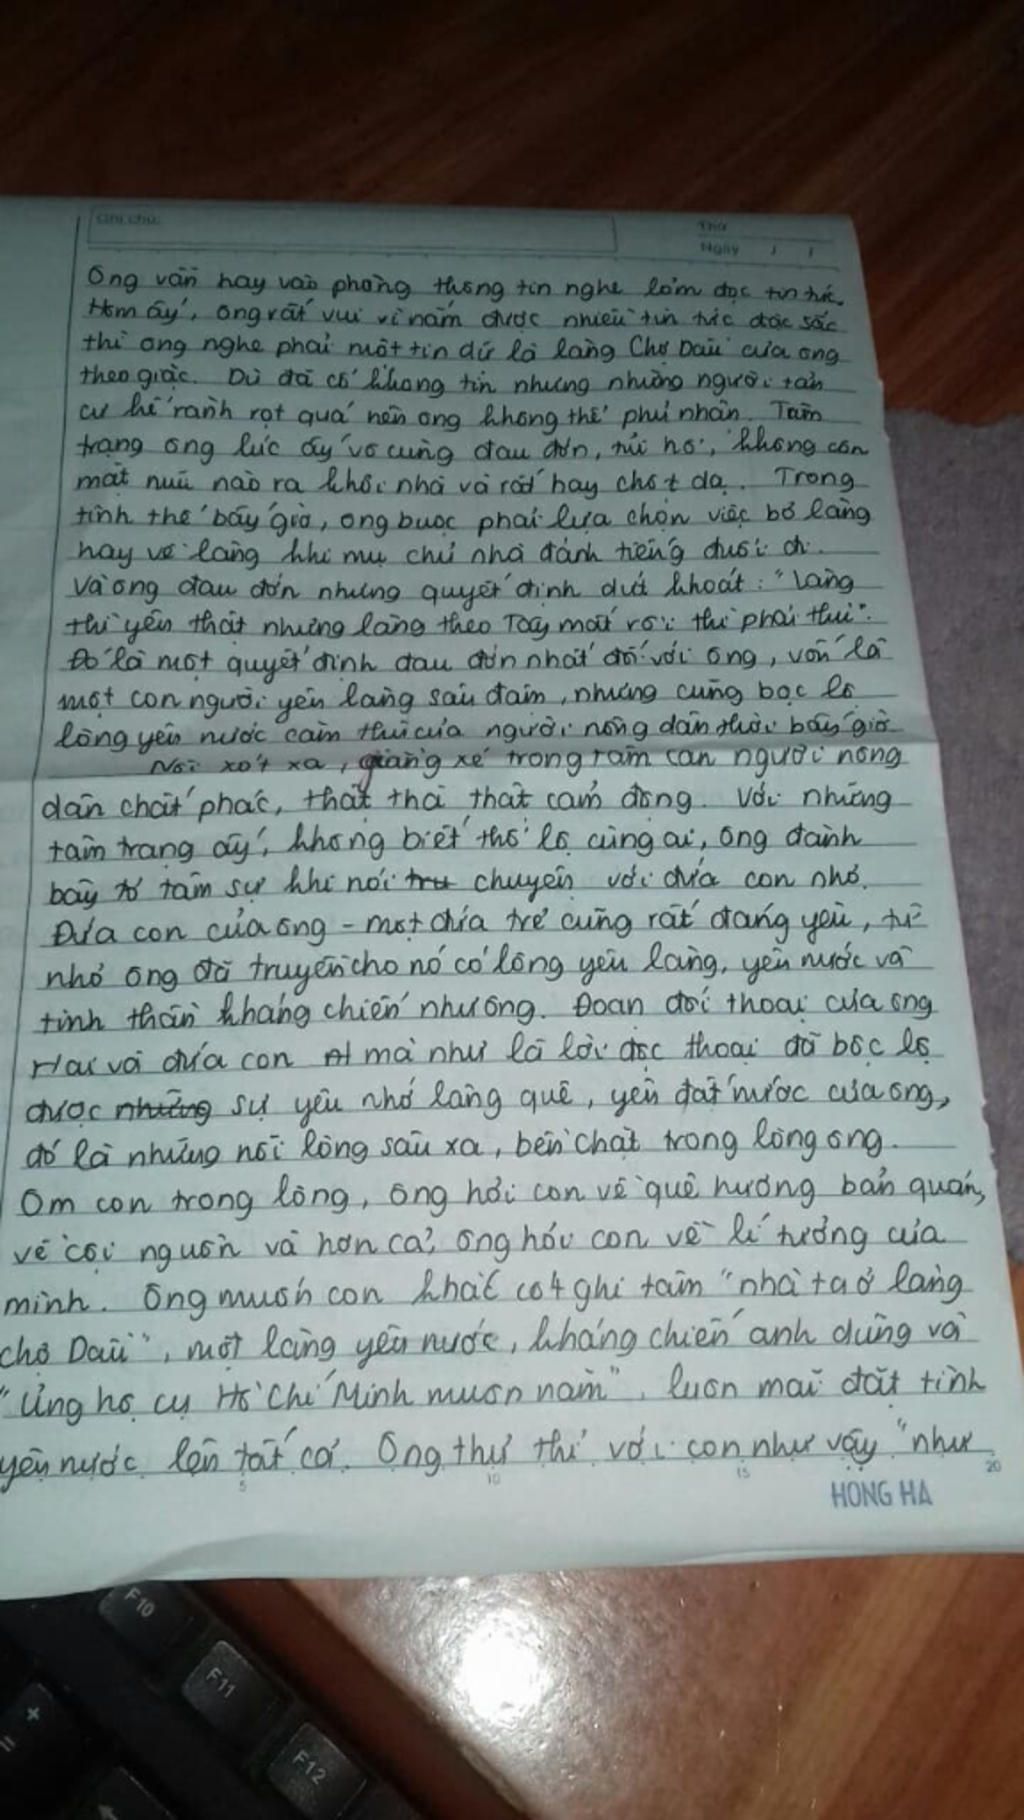 Ghi chú:
Thứ
Ngày / /
Ông vẫn hay vào phòng thông tin nghe lỏm đọc tin tức.
Hôm ấy, ông rất vui vì nắm được nhiều tin tức đặc sắc
thì ông nghe phải một tin dữ là làng Chợ Dầu của ông
theo giặc. Dù đã cố không tin nhưng những người tản
cư kể rành rọt quá nên ông không thể phủ nhận. Tâm
trạng ông lúc ấy vô cùng đau đớn, tủi hổ, không còn
mặt mũi nào ra khỏi nhà và rất hay chột dạ. Trong
tình thế bấy giờ, ông buộc phải lựa chọn việc bỏ làng
hay về làng khi mụ chủ nhà đánh tiếng đuổi đi.
Và ông đau đớn nhưng quyết định dứt khoát: "Làng
thì yêu thật nhưng làng theo Tây mất rồi thì phải thù".
Đó là một quyết định đau đớn nhất đối với ông, vốn là
một con người yêu làng sâu đậm, nhưng cũng bộc lộ
lòng yêu nước căm thù của người nông dân thời bấy giờ
Nỗi xót xa, giằng xé trong tâm can người nông
dân chất phác, thật thà thật cảm động. Với những
tâm trạng ấy, không biết thổ lộ cùng ai, ông đành
bày tỏ tâm sự khi nói tru chuyện với đứa con nhỏ.
Đứa con của ông - một đứa trẻ cũng rất đáng yêu, từ
nhỏ ông đã truyền cho nó có lòng yêu làng, yêu nước và
tinh thần kháng chiến như ông. Đoạn đối thoại của ông
Hai và đứa con út mà như là lời độc thoại đã bộc lộ
được những sự yêu nhớ làng quê, yêu đất nước của ông,
đó là những nỗi lòng sâu xa, bền chặt trong lòng ông.
Ôm con trong lòng, ông hỏi con về quê hương bản quán,
về cội nguồn và hơn cả, ông hỏi con về lí tưởng của
mình. Ông muốn con khắc cốt ghi tâm "nhà ta ở làng
chợ Dầu", một làng yêu nước, kháng chiến anh dũng và
"Ủng hộ cụ Hồ Chí Minh muôn năm", luôn mãi đặt tình
yêu nước lên tất cả. Ông thủ thỉ với con như vậy "như
5 10 15 20
HONG HA
F10
F11
F12
+
=